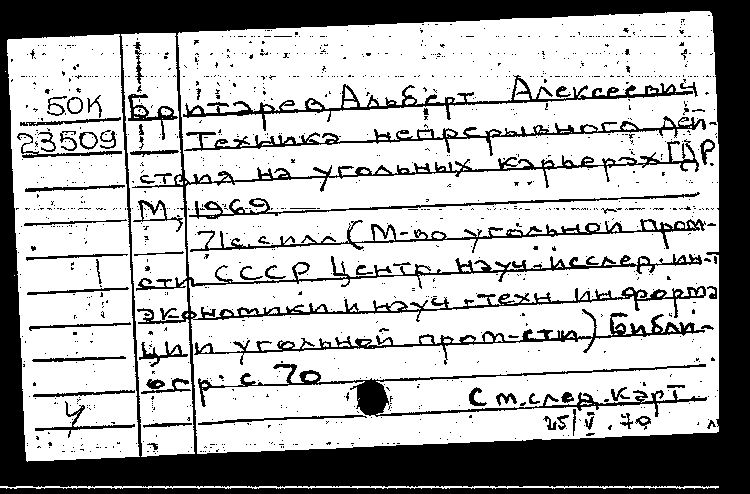 50К Бритарев, Альберт Алексеевич.
23509 Техника непрерывного дей-
ствия на угольных карьерах ГДР
М, 1969.
71с. с илл (М-во угольной пром-
сти СССР Центр. науч-исслед. ин-т
экономики и науч-техн. информа
ции угольной пром-сти) Библи-
огр: с. 70
См. след. карт.
25/V.70